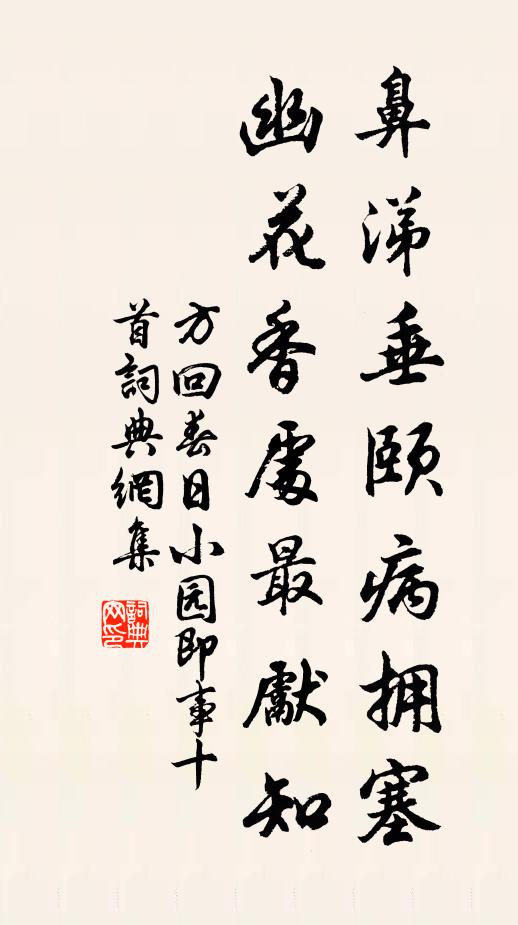 鼻涕垂颐病拥塞
幽花香處最獻知
方回春日小园即事十
首詞典網集
詞典网印